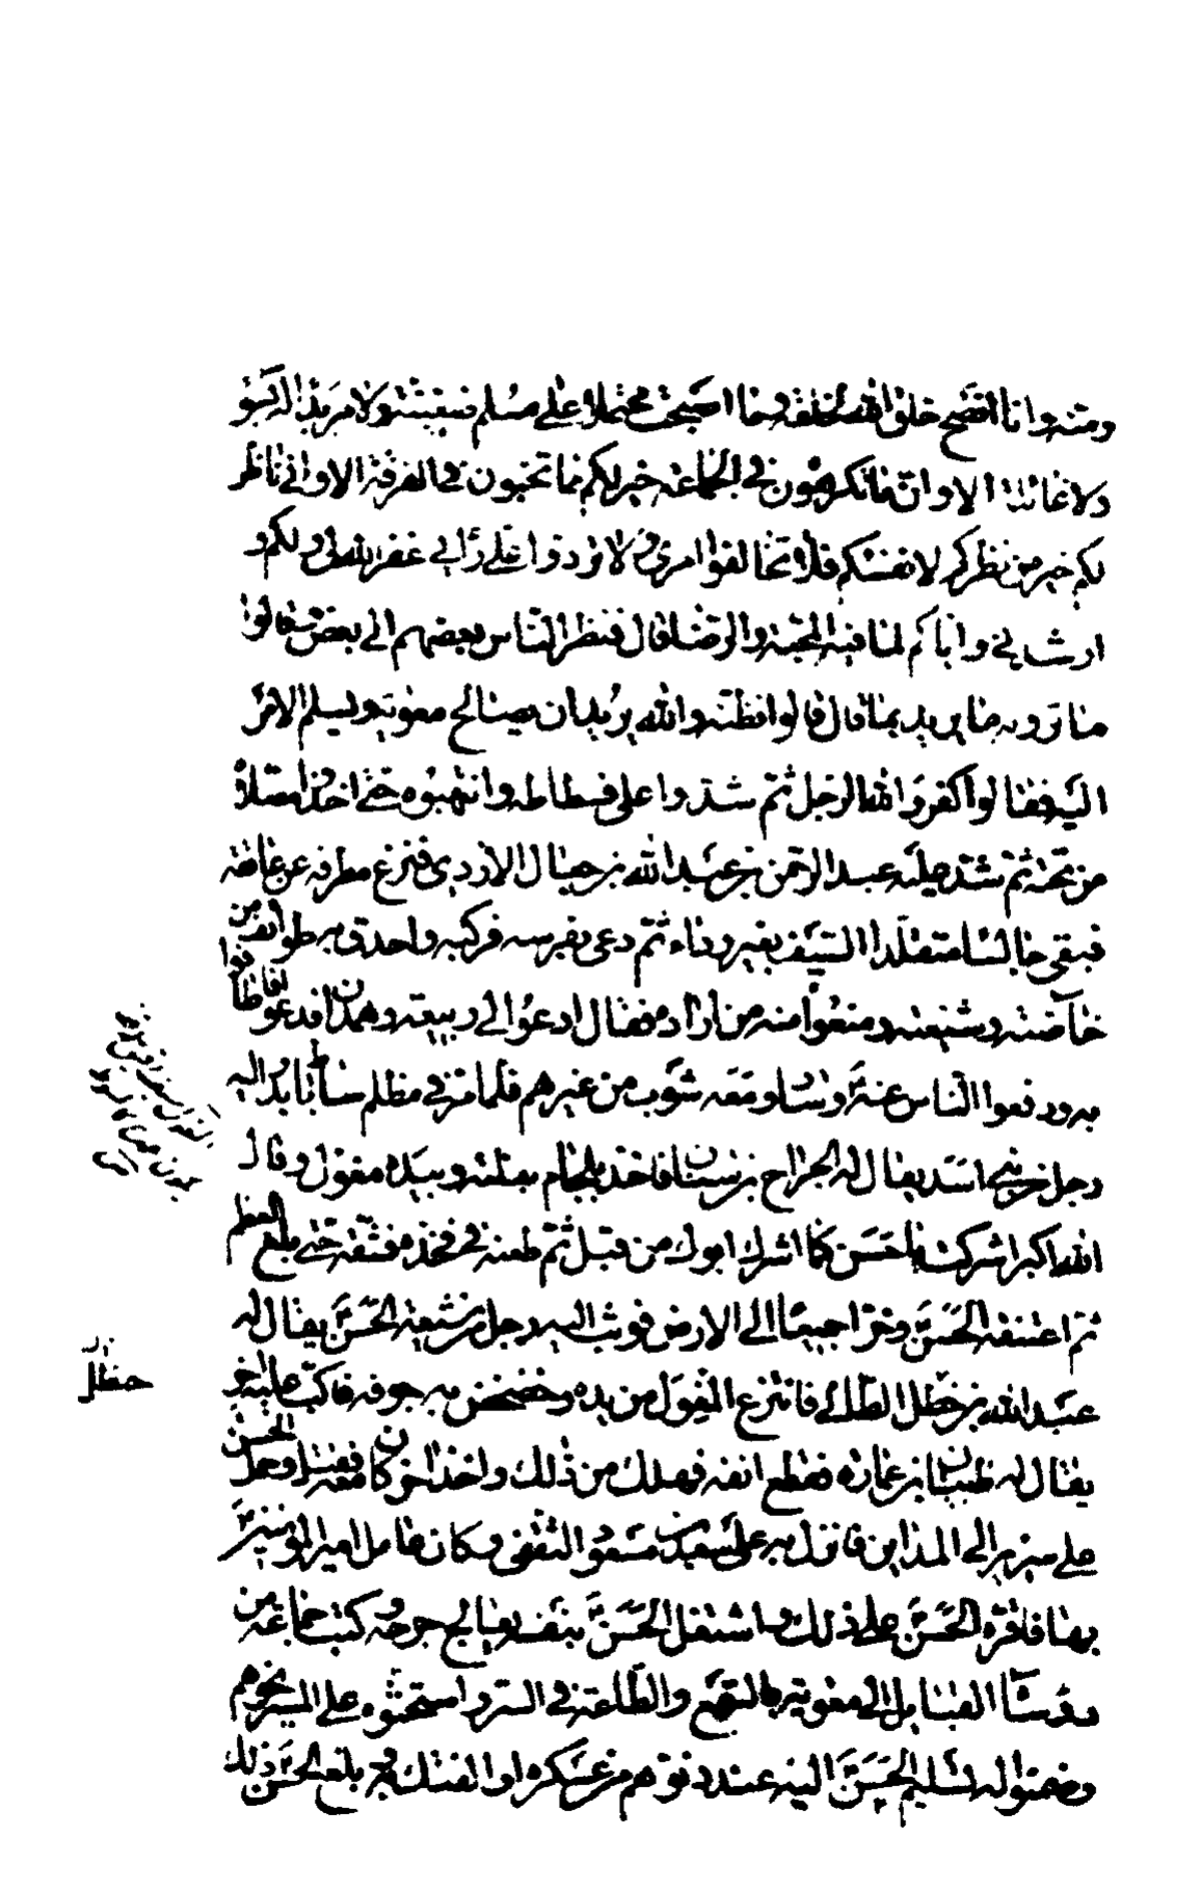 ومنه وانا انصح خلق الله لخلقه وما اصبحت محتملا على مسلم ضغينة ولا مريدا له بسوء
ولا غائلة الا وان ما تكرهون في الجماعة خير لكم مما تحبون في الفرقة الا واني ناظر
لكم خير من نظركم لانفسكم فلا تخالفوا امري ولا تردوا علي رأيي غفر الله لي ولكم و
ارشدني واياكم لما فيه المحبة والرضا قال فنظر الناس بعضهم الى بعض وقالوا
ما ترونه ما يريد بما قال قالوا نظنه والله يريد ان يصالح معوية ويسلم الامر
اليه فقالوا كفر والله الرجل ثم شدوا على فسطاطه وانتهبوه حتى اخذوا مصلاه
من تحته ثم شد عليه عبد الرحمن بن عبد الله بن جعال الازدي فنزع مطرفه عن عاتقه
فبقي جالسا متقلدا السيف بغير رداء ثم دعى بفرسه فركبه واحدق به طوائف من
خاصته وشيعته ومنعوا منه من اراده فقال ادعوا الي ربيعة وهمدان فدعوا له فاطافوا
به ودفعوا الناس عنه ع وسار ومعه شوب من غيرهم فلما مر في مظلم ساباط بدر اليه
رجل من بني اسد يقال له الجراح بن سنان فاخذ بلجام بغلته وبيده مغول وقال
الله اكبر اشركت يا حسن كما اشرك ابوك من قبل ثم طعنه في فخذه فشقه حتى بلغ العظم
ثم اعتنقه الحسن ع وخرا جميعا الى الارض فوثب اليه رجل من شيعة الحسن ع يقال له
عبد الله بن خطل الطائي فانتزع المغول من يده وخضخض به جوفه فاكب عليه اخر
يقال له ظبيان بن عمارة فقطع انفه فهلك من ذلك واخذ اخر كان معه فقتل وحمل الحسن
على سرير الى المداين فانزل به على سعد بن مسعود الثقفي وكان عامل امير المؤمنين ع
بها فاقره الحسن ع على ذلك واشتغل الحسن ع بنفسه يعالج جرحه وكتب جماعة من
رؤسا القبايل الى معوية بالسمع والطاعة في السر واستحثوه على المسير نحوهم
وضمنوا له تسليم الحسن ع اليه عند دنوهم من عسكره او الفتك به وبلغ الحسن ع ذلك
حنظل